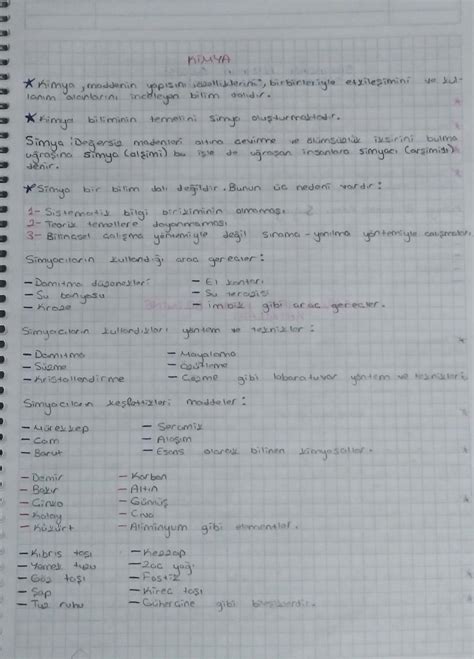 KİMYA
★ Kimya, maddenin yapısını özelliklerini, birbirleriyle etkileşimini ve kul-
lanım alanlarını inceleyen bilim dalıdır.
★ Kimya biliminin temelini simya oluşturmaktadır.
Simya: Değersiz madenleri altına çevirme ve ölümsüzlük iksirini bulma
uğraşına simya (alşimi) bu işle de uğraşan insanlara simyacı (arşimist)
denir.
★ Simya bir bilim dalı değildir. Bunun üç nedeni vardır:
1- Sistematik bilgi birikiminin olmaması
2- Teorik temellere dayanmaması
3- Bilimsel çalışma yöntemiyle değil sınama - yanılma yöntemiyle çalışmaları
Simyacıların kullandığı araç gereçler:
- Damıtma düzenekleri - El kantarı
- Su banyosu - Su terazisi
- Kroze - imbik gibi araç gereçler.
Simyacıların kullandıkları yöntem ve teknikler:
- Damıtma - Mayalama
- Süzme - Özütleme
- Kristallendirme - Çözme gibi labaratuvar yöntem ve teknikleri
Simyacıların keşfettikleri maddeler:
- Mürekkep - Seramik
- Cam - Alaşım
- Barut - Esans olarak bilinen kimyasallar.
- Demir - Karbon
- Bakır - Altın
- Çinko - Gümüş
- Kalay - Cıva
- Kükürt - Aliminyum gibi elementler.
- Kıbrıs taşı - Kezzap
- Yemek tuzu - Zaç yağı
- Göz taşı - Fostik
- Şap - Kireç taşı
- Tuz ruhu - Güherçile gibi bileşiklerdir.